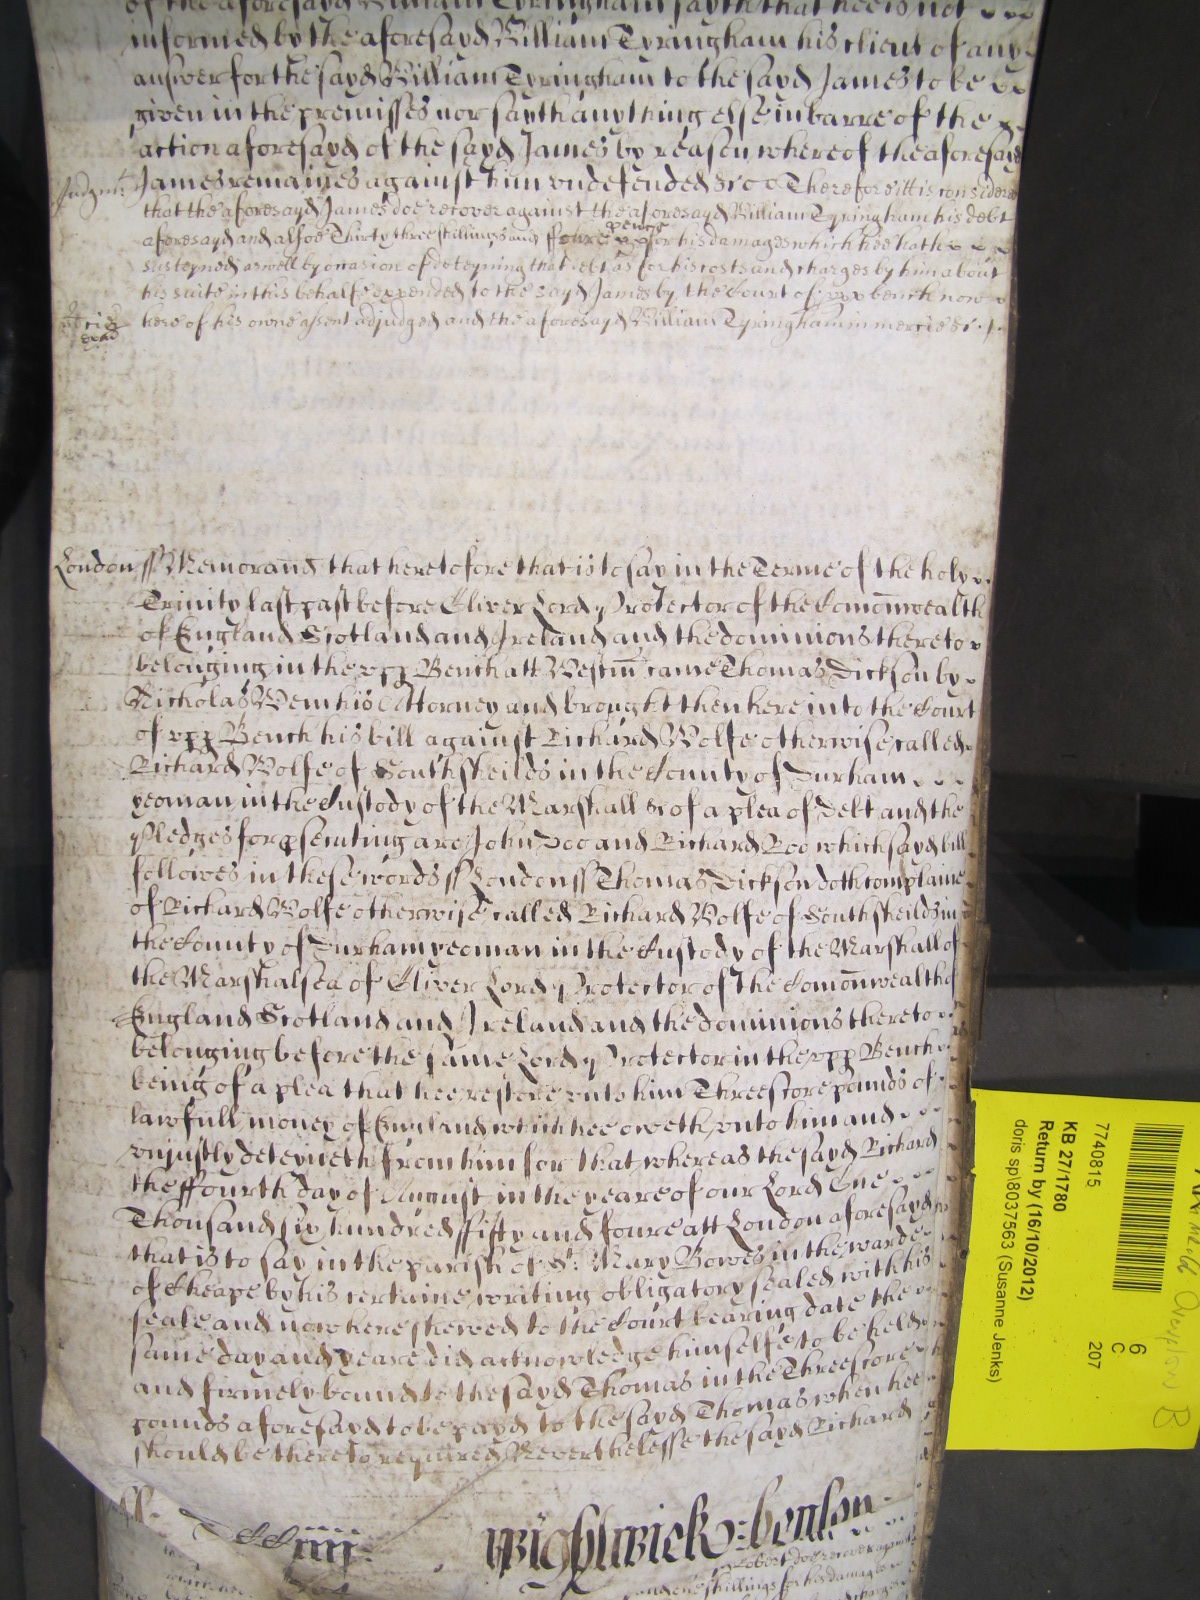 of the aforesayd William Tyringham sayth that hee is not
informed by the aforesayd William Tyringham his client of any
answer for the sayd William Tyringham to the sayd James to be
given in the premisses nor sayth any thing else in barre of the
action aforesayd of the sayd James by reason whereof the aforesayd
Judgmt James remaines against him undefended &c Therefore itt is considered
that the aforesayd James doe recover against the aforesayd William Tyringham his debt
aforesayd and alsoe Thirty three shillings and ffoure pence for his damages which hee hath
susteyned aswell by occasion of deteyning that debt as for his costs and charges by him about
his suite in this behalfe expended to the sayd James by the Court of upp bench now
here of his owne assent adjudged and the aforesayd William Tyringham in mercie &c
London ss Memorand that heretofore that is to say in the Terme of the holy
Trinity last past before Oliver Lord Protector of the Comonwealth
of England Scotland and Ireland and the dominions thereto
belonging in the upp Bench att Westm came Thomas Dickson by
Nicholas Wem his Attorney and brought then here into the Court
of upp Bench his bill against Richard Wolfe otherwise called
Richard Wolfe of Southsheilds in the County of Durham
yeoman in the Custody of the Marshall &c of a plea of Debt and the
Pledges for psecuting are John Doo and Richard Roo which sayd bill
followes in these words ss London ss Thomas Dickson doth complaine
of Richard Wolfe otherwise called Richard Wolfe of Southsheilds in
the County of Durham yeoman in the Custody of the Marshall of
the Marshalsea of Oliver Lord Protector of the Comonwealth of
England Scotland and Ireland and the dominions thereto
belonging before the same Lord Protector in the upp Bench
being of a plea that hee restore unto him Threescore pounds of
lawfull money of England which hee oweth unto him and
unjustly deteyneth from him for that whereas the sayd Richard
the ffourth day of August in the yeare of our Lord One
Thousand six hundred ffifty and foure att London aforesayd
that is to say in the parish of St Mary Bowes in the warde
of Cheape by his certaine writing obligatory sealed with his
seale and now here shewed to the Court bearing date the
same day and yeare did acknowledge himselfe to be held
and firmely bound to the sayd Thomas in the Threescore
pounds aforesayd to be payd to the sayd Thomas when hee
should be thereto required Neverthelesse the sayd Richard
Wightwick : benson
7740815
KB 27/1780
Return by (16/10/2012)
doris sp\8037563 (Susanne Jenks)
6
C
207